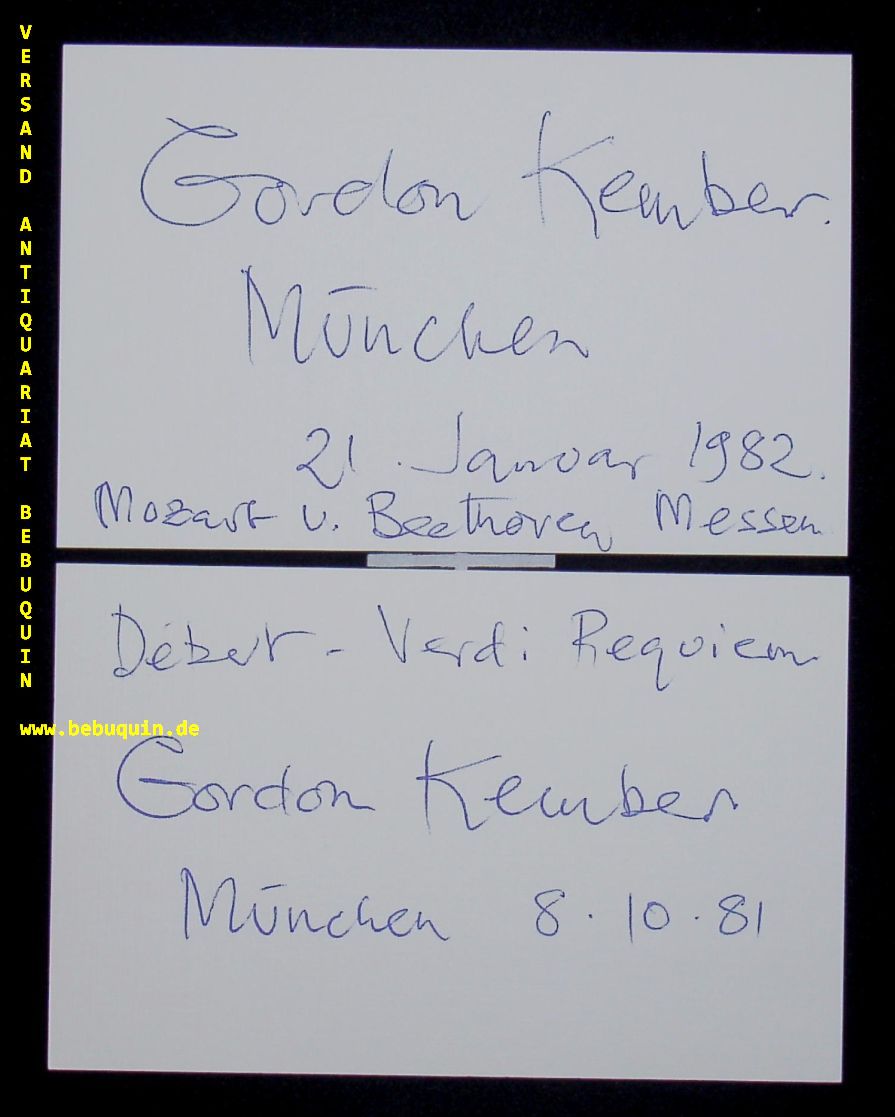 VERSAND ANTIQUARIAT BEBUQUIN
Gordon Kember.
München
21. Januar 1982.
Mozart u. Beethoven Messen
Début - Verdi Requiem
www.bebuquin.de
Gordon Kember
München 8.10.81